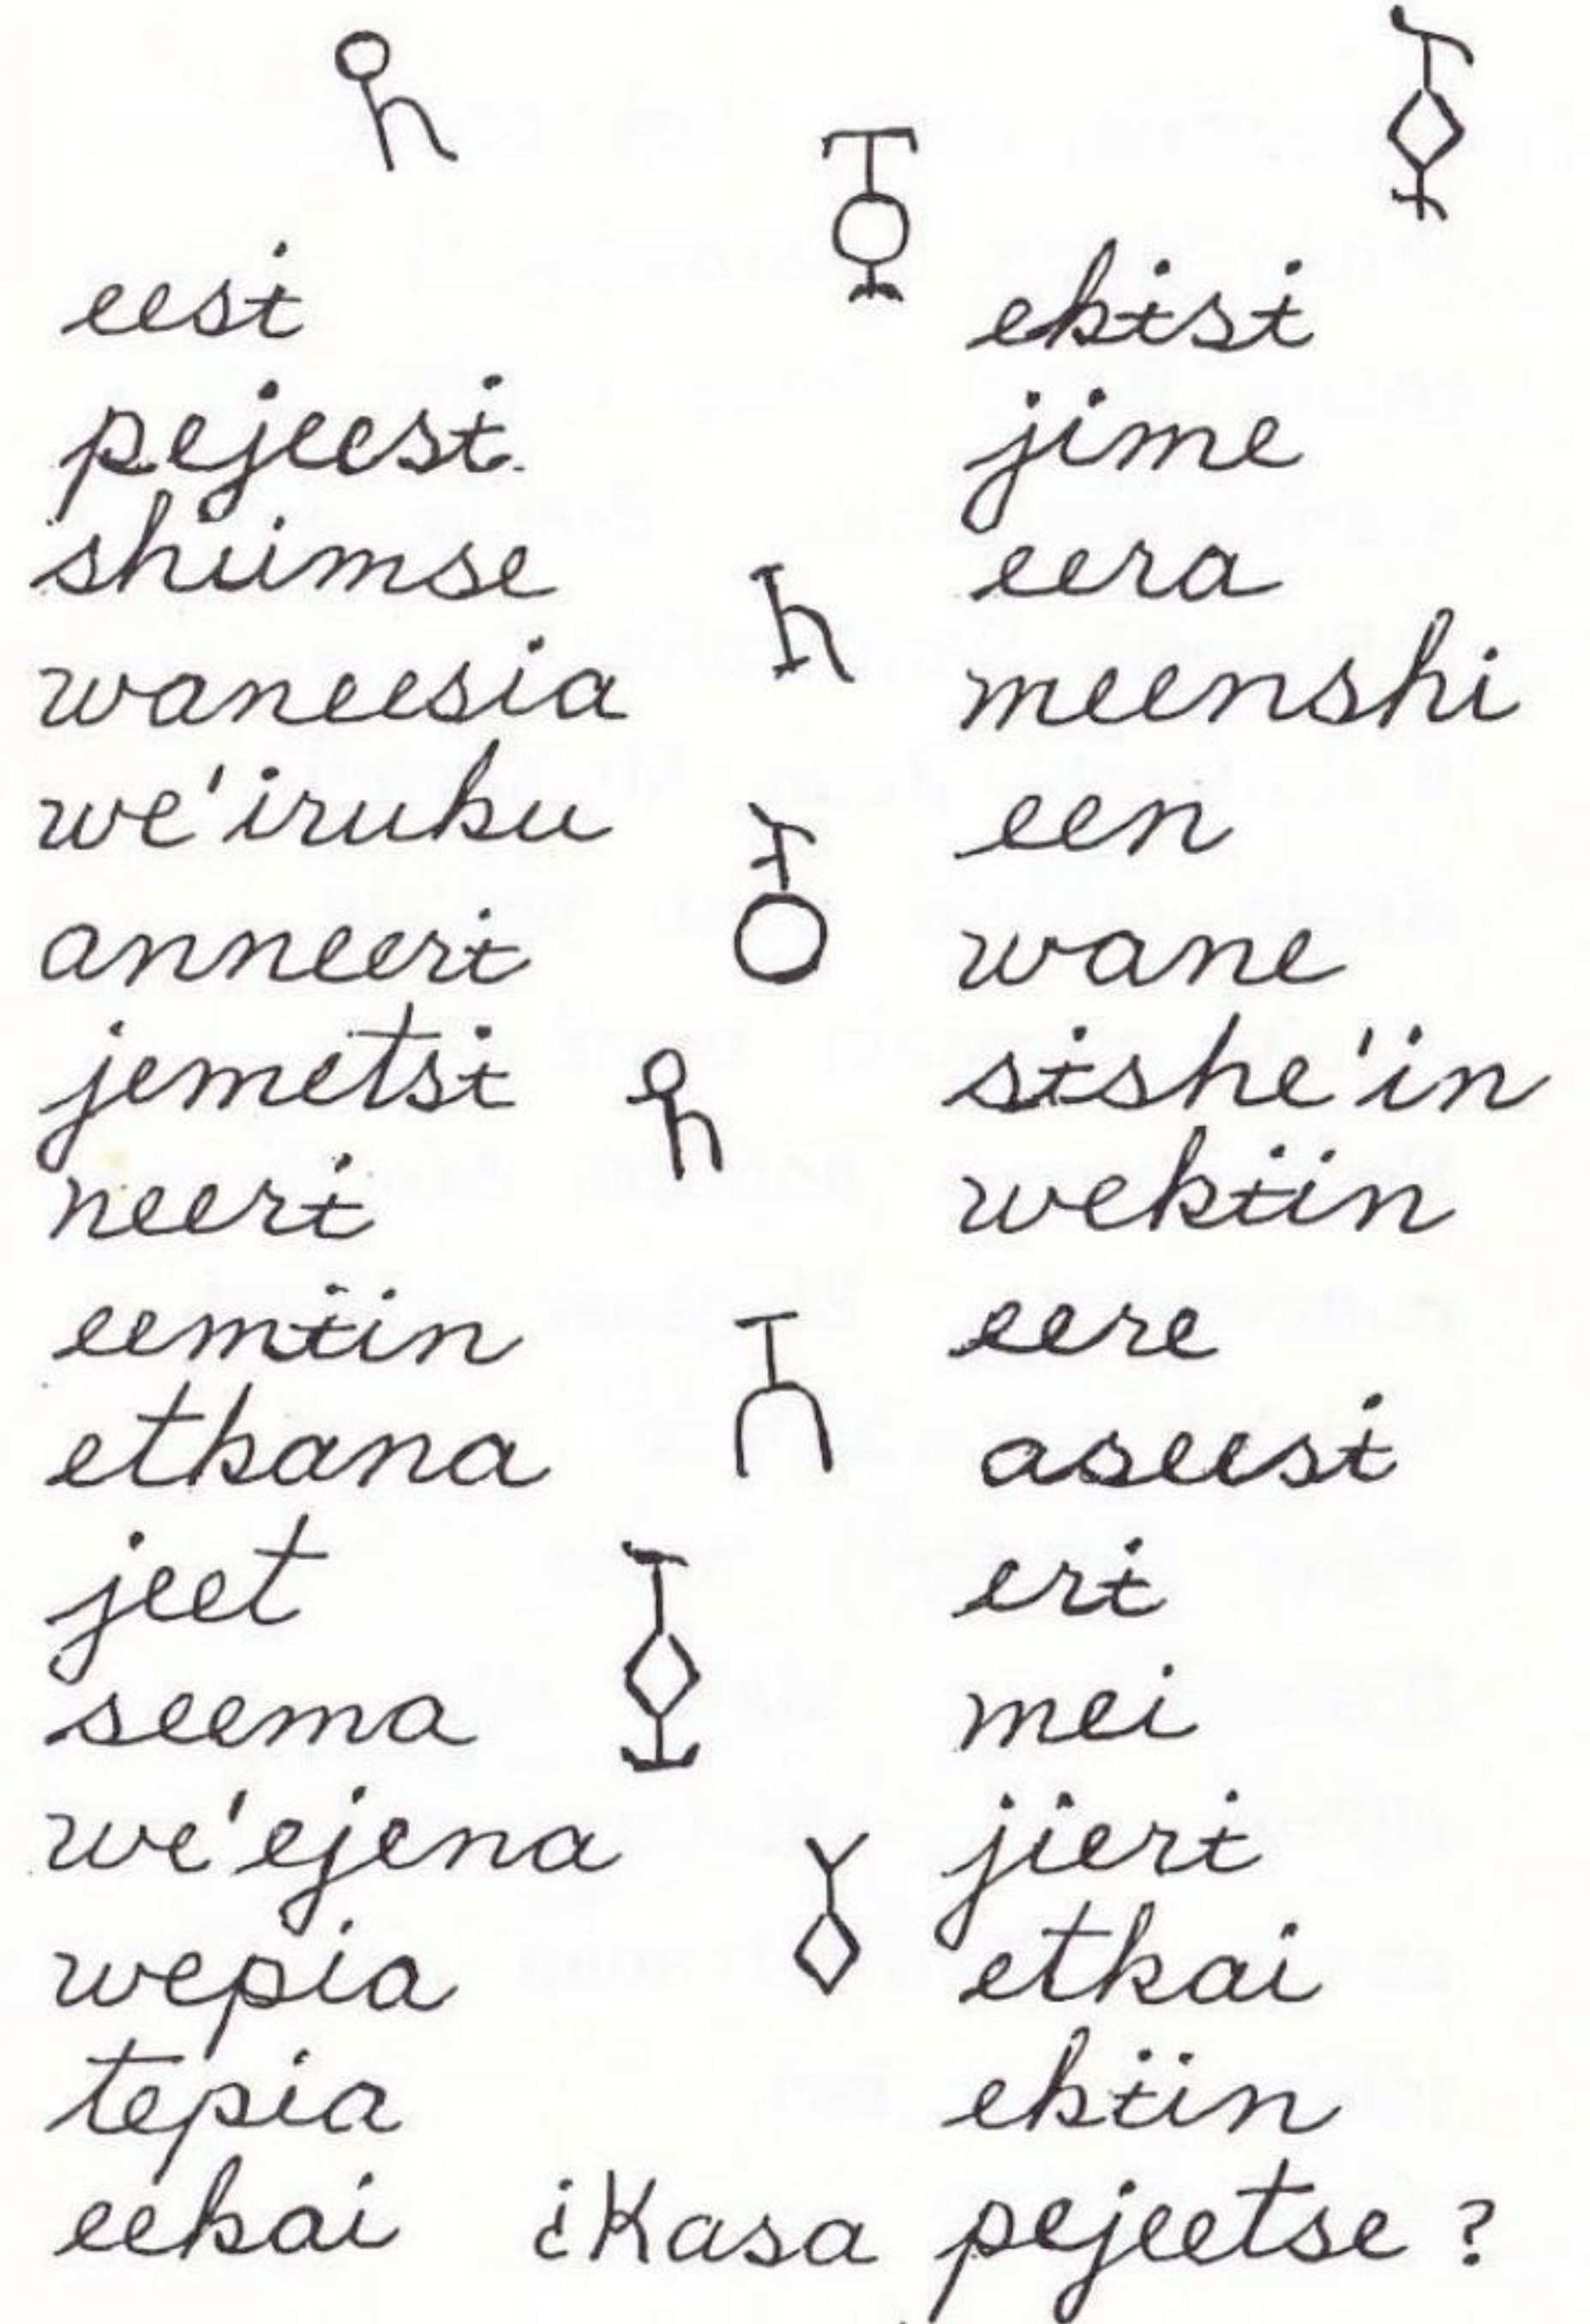 eesɨ
pejeesɨ
shiimse
waneesia
we'iruku
anneerɨ
jemetsɨ
neerɨ
eemɨin
etkana
jeet
seema
we'ejena
wepia
tepia
eekai
ekɨsɨ
jime
eera
meenshi
een
wane
sɨshe'in
wekɨin
eere
aseesɨ
erɨ
mei
jierɨ
etkai
ekɨin
¿Kasa pejeetse ?